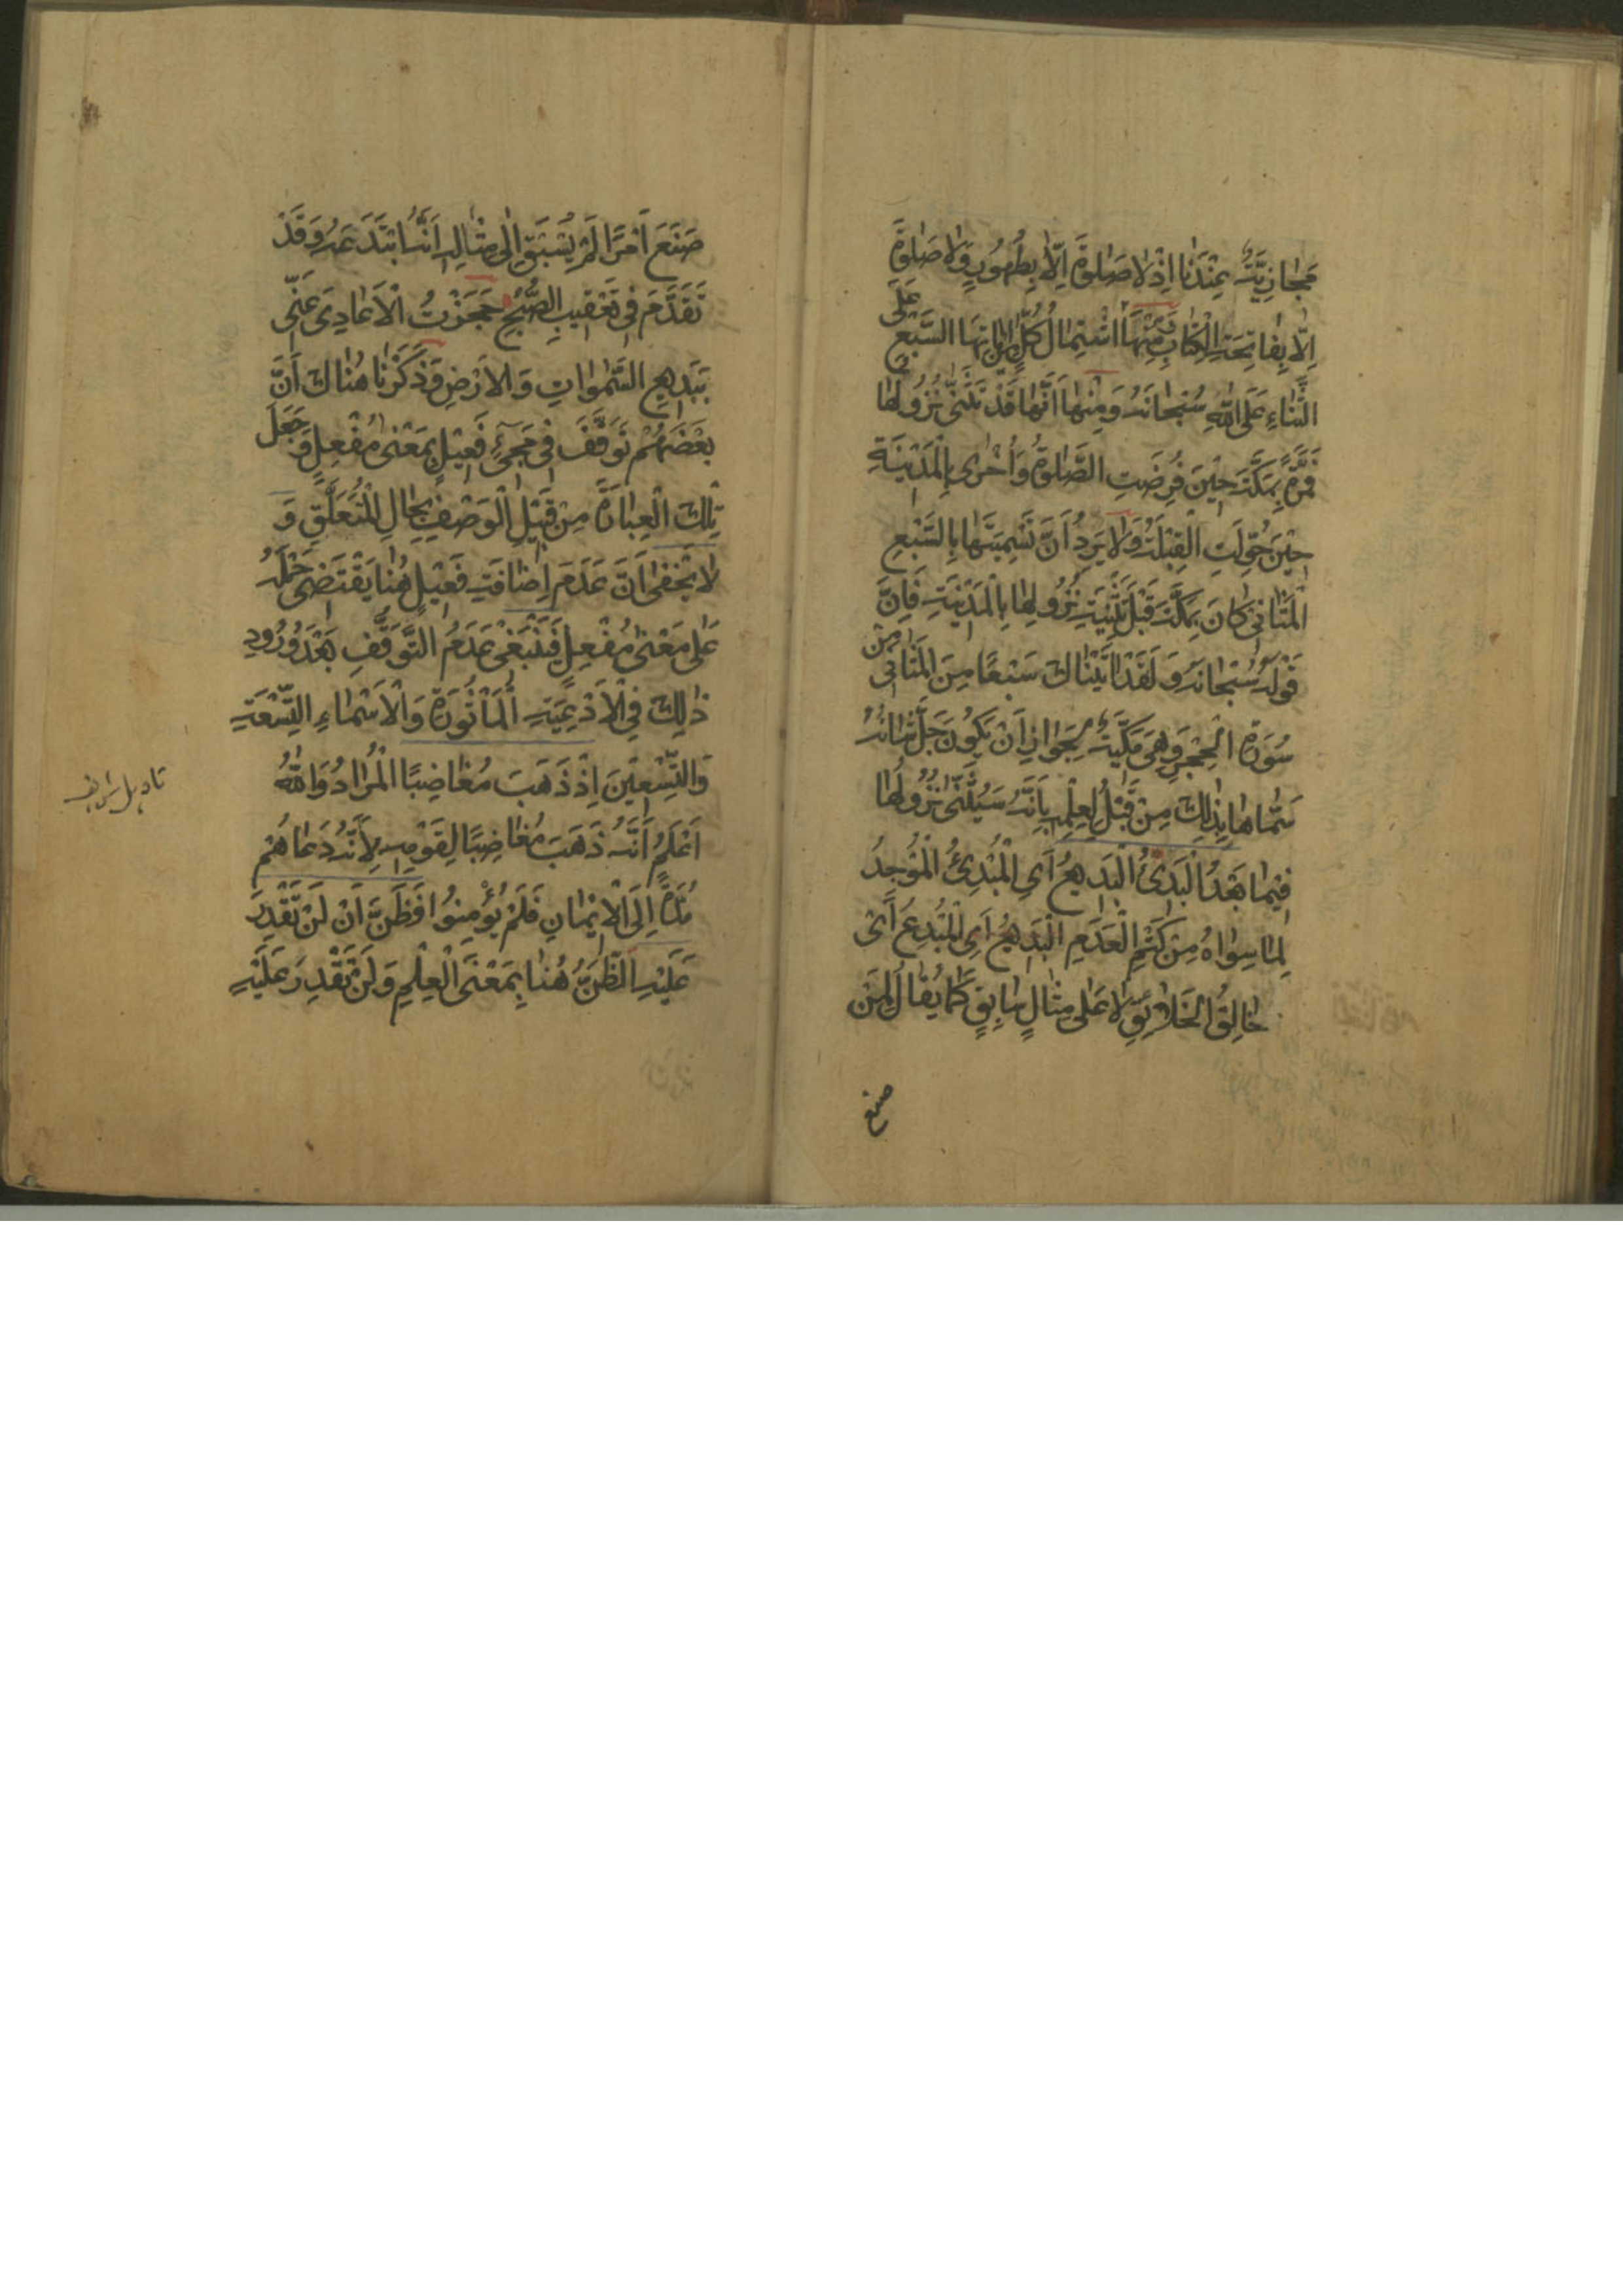 مَجَازِيَّةٌ عِنْدَنَا اِذْ لَا صَلٰوةَ اِلَّا بِطَهُورٍ وَلَا صَلٰوةَ
اِلَّا بِفَاتِحَةِ الْكِتَابِ وَمِنْهَا اشْتِمَالُ كُلٍّ مِنْ اٰيَاتِهَا السَّبْعِ عَلَى
الثَّنَاءِ عَلَى اللّٰهِ سُبْحَانَهُ وَمِنْهَا اَنَّهَا قَدْ تَثَنّٰى نُزُولُهَا
فَمَرَّةً بِمَكَّةَ حِيْنَ فُرِضَتِ الصَّلٰوةُ وَاُخْرٰى بِالْمَدِيْنَةِ
حِيْنَ حُوِّلَتِ الْقِبْلَةُ وَلَا يَرِدُ اَنَّ تَسْمِيَتَهَا بِالسَّبْعِ
الْمَثَانِي كَانَ بِمَكَّةَ قَبْلَ تَثْنِيَةِ نُزُولِهَا بِالْمَدِيْنَةِ فَاِنَّ
قَوْلَهُ سُبْحَانَهُ وَلَقَدْ اٰتَيْنَاكَ سَبْعًا مِنَ الْمَثَانِي مِنْ
سُورَةِ الْحِجْرِ وَهِيَ مَكِّيَّةٌ لِجَوَازِ اَنْ يَكُونَ جَلَّ شَانُهُ
سَمَّاهَا بِذٰلِكَ مِنْ قَبْلُ لِعِلْمِهِ بِاَنَّهُ سَيُثَنّٰى نُزُولُهَا
فِيْمَا بَعْدُ الْبَدِئُ الْبَدِيعُ اَيِ الْمُبْدِئُ الْمُوجِدُ
لِمَا سِوَاهُ مِنْ كَتْمِ الْعَدَمِ الْبَدِيعُ اَيِ الْمُبْدِعُ اَيْ
خَالِقُ الْخَلَائِقِ لَا عَلٰى مِثَالٍ سَابِقٍ كَمَا يُقَالُ لِمَنْ
صنع
صَنَعَ اَمْرًا لَمْ يُسْبَقْ اِلٰى مِثَالِهِ اَنَّهُ ابْتَدَعَهُ وَقَدْ
تَقَدَّمَ فِي تَعْقِيبِ الصُّبْحِ حَجَزْتُ الْاَعَادِيَ عَنِّي
بِبَدِيعِ السَّمٰوَاتِ وَالْاَرْضِ وَذَكَرْنَا هُنَاكَ اَنَّ
بَعْضَهُمْ تَوَقَّفَ فِي مَجِيْءِ فَعِيْلٍ بِمَعْنٰى مُفْعِلٍ وَجَعَلَ
تِلْكَ الْعِبَارَةَ مِنْ قَبِيْلِ الْوَصْفِ بِحَالِ الْمُتَعَلَّقِ وَ
لَا يَخْفٰى اَنَّ عَدَمَ اِضَافَةِ فَعِيْلٍ هُنَا يَقْتَضِي حَمْلَهُ
عَلٰى مَعْنٰى مُفْعِلٍ فَيَنْبَغِي عَدَمُ التَّوَقُّفِ بَعْدَ وُرُودِ
ذٰلِكَ فِي الْاَدْعِيَةِ الْمَأْثُورَةِ وَالْاَسْمَاءِ التِّسْعَةِ
وَالتِّسْعِيْنَ اِذْ ذَهَبَ مُغَاضِبًا الْمُرَادُ وَاللّٰهُ
اَعْلَمُ اَنَّهُ ذَهَبَ مُغَاضِبًا لِقَوْمِهِ لِاَنَّهُ دَعَاهُمْ
مُدَّةً اِلَى الْاِيْمَانِ فَلَمْ يُؤْمِنُوا فَظَنَّ اَنْ لَنْ نَقْدِرَ
عَلَيْهِ الظَّنُّ هُنَا بِمَعْنَى الْعِلْمِ وَلَنْ نَقْدِرَ عَلَيْهِ